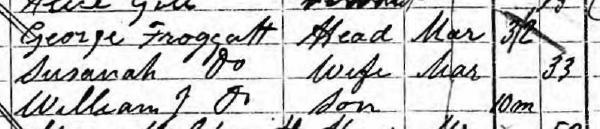 George Froggatt Head Mar 32
Susanah Do Wife Mar 33
William J Do Son 10m